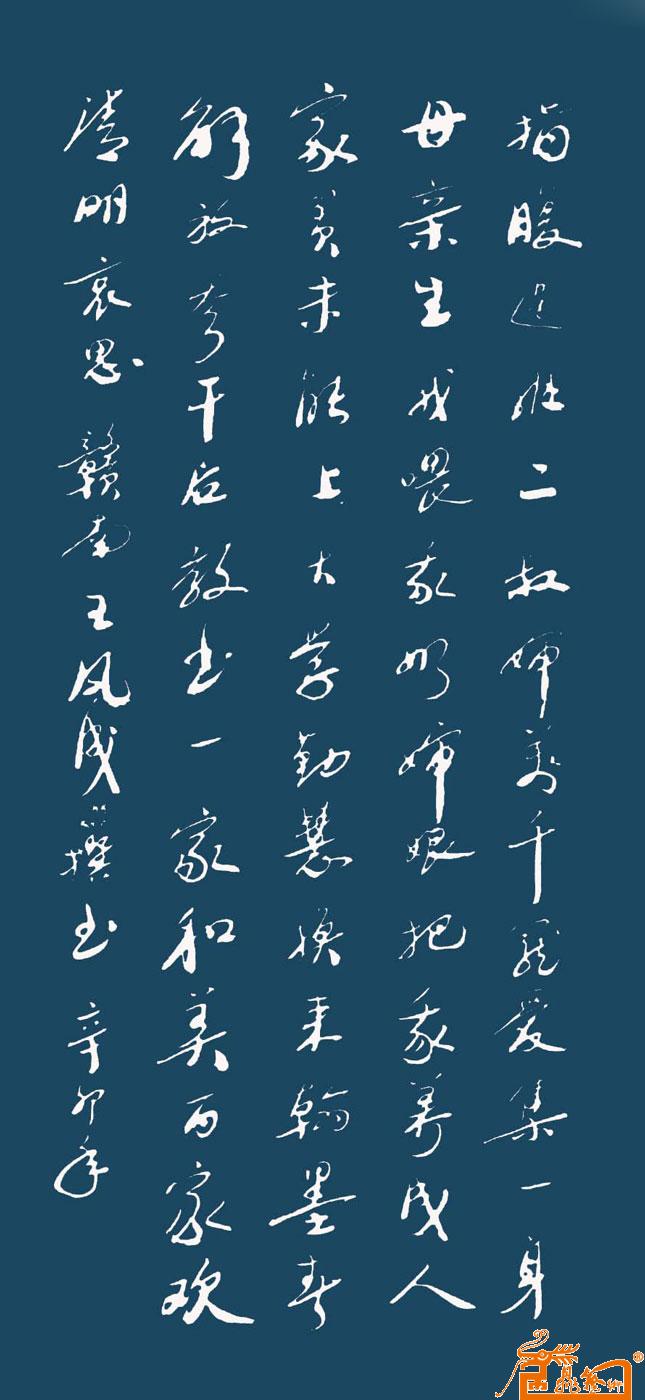 指腹过继二叔婶万千宠爱集一身
母亲生我喂我奶婶娘把我养成人
家贫未能上大学勤慧换来翰墨香
解放当干后教书一家和美两家欢
清明哀思 赣南王风成撰书 辛卯年